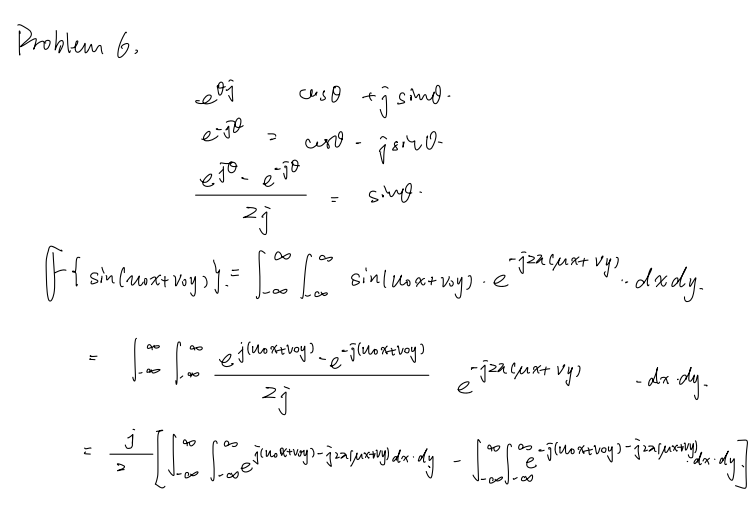 Problem 6.
e^{θj} cosθ + j sinθ.
e^{-jθ} = cosθ - j sinθ.
\frac{e^{jθ} - e^{-jθ}}{2j} = sinθ.
F{sin(u₀x+v₀y)}. = ∫_{-∞}^{∞} ∫_{-∞}^{∞} sin(u₀x+v₀y) · e^{-j2π(ux+vy)} ·· dxdy.
= ∫_{-∞}^{∞} ∫_{-∞}^{∞} \frac{e^{j(u₀x+v₀y)} - e^{-j(u₀x+v₀y)}}{2j} e^{-j2π(ux+vy)} - dx·dy.
= \frac{j}{2} [∫_{-∞}^{∞} ∫_{-∞}^{∞} e^{j(u₀x+v₀y) - j2π(ux+vy)} dx·dy - ∫_{-∞}^{∞} ∫_{-∞}^{∞} e^{-j(u₀x+v₀y) - j2π(ux+vy)} dx·dy]